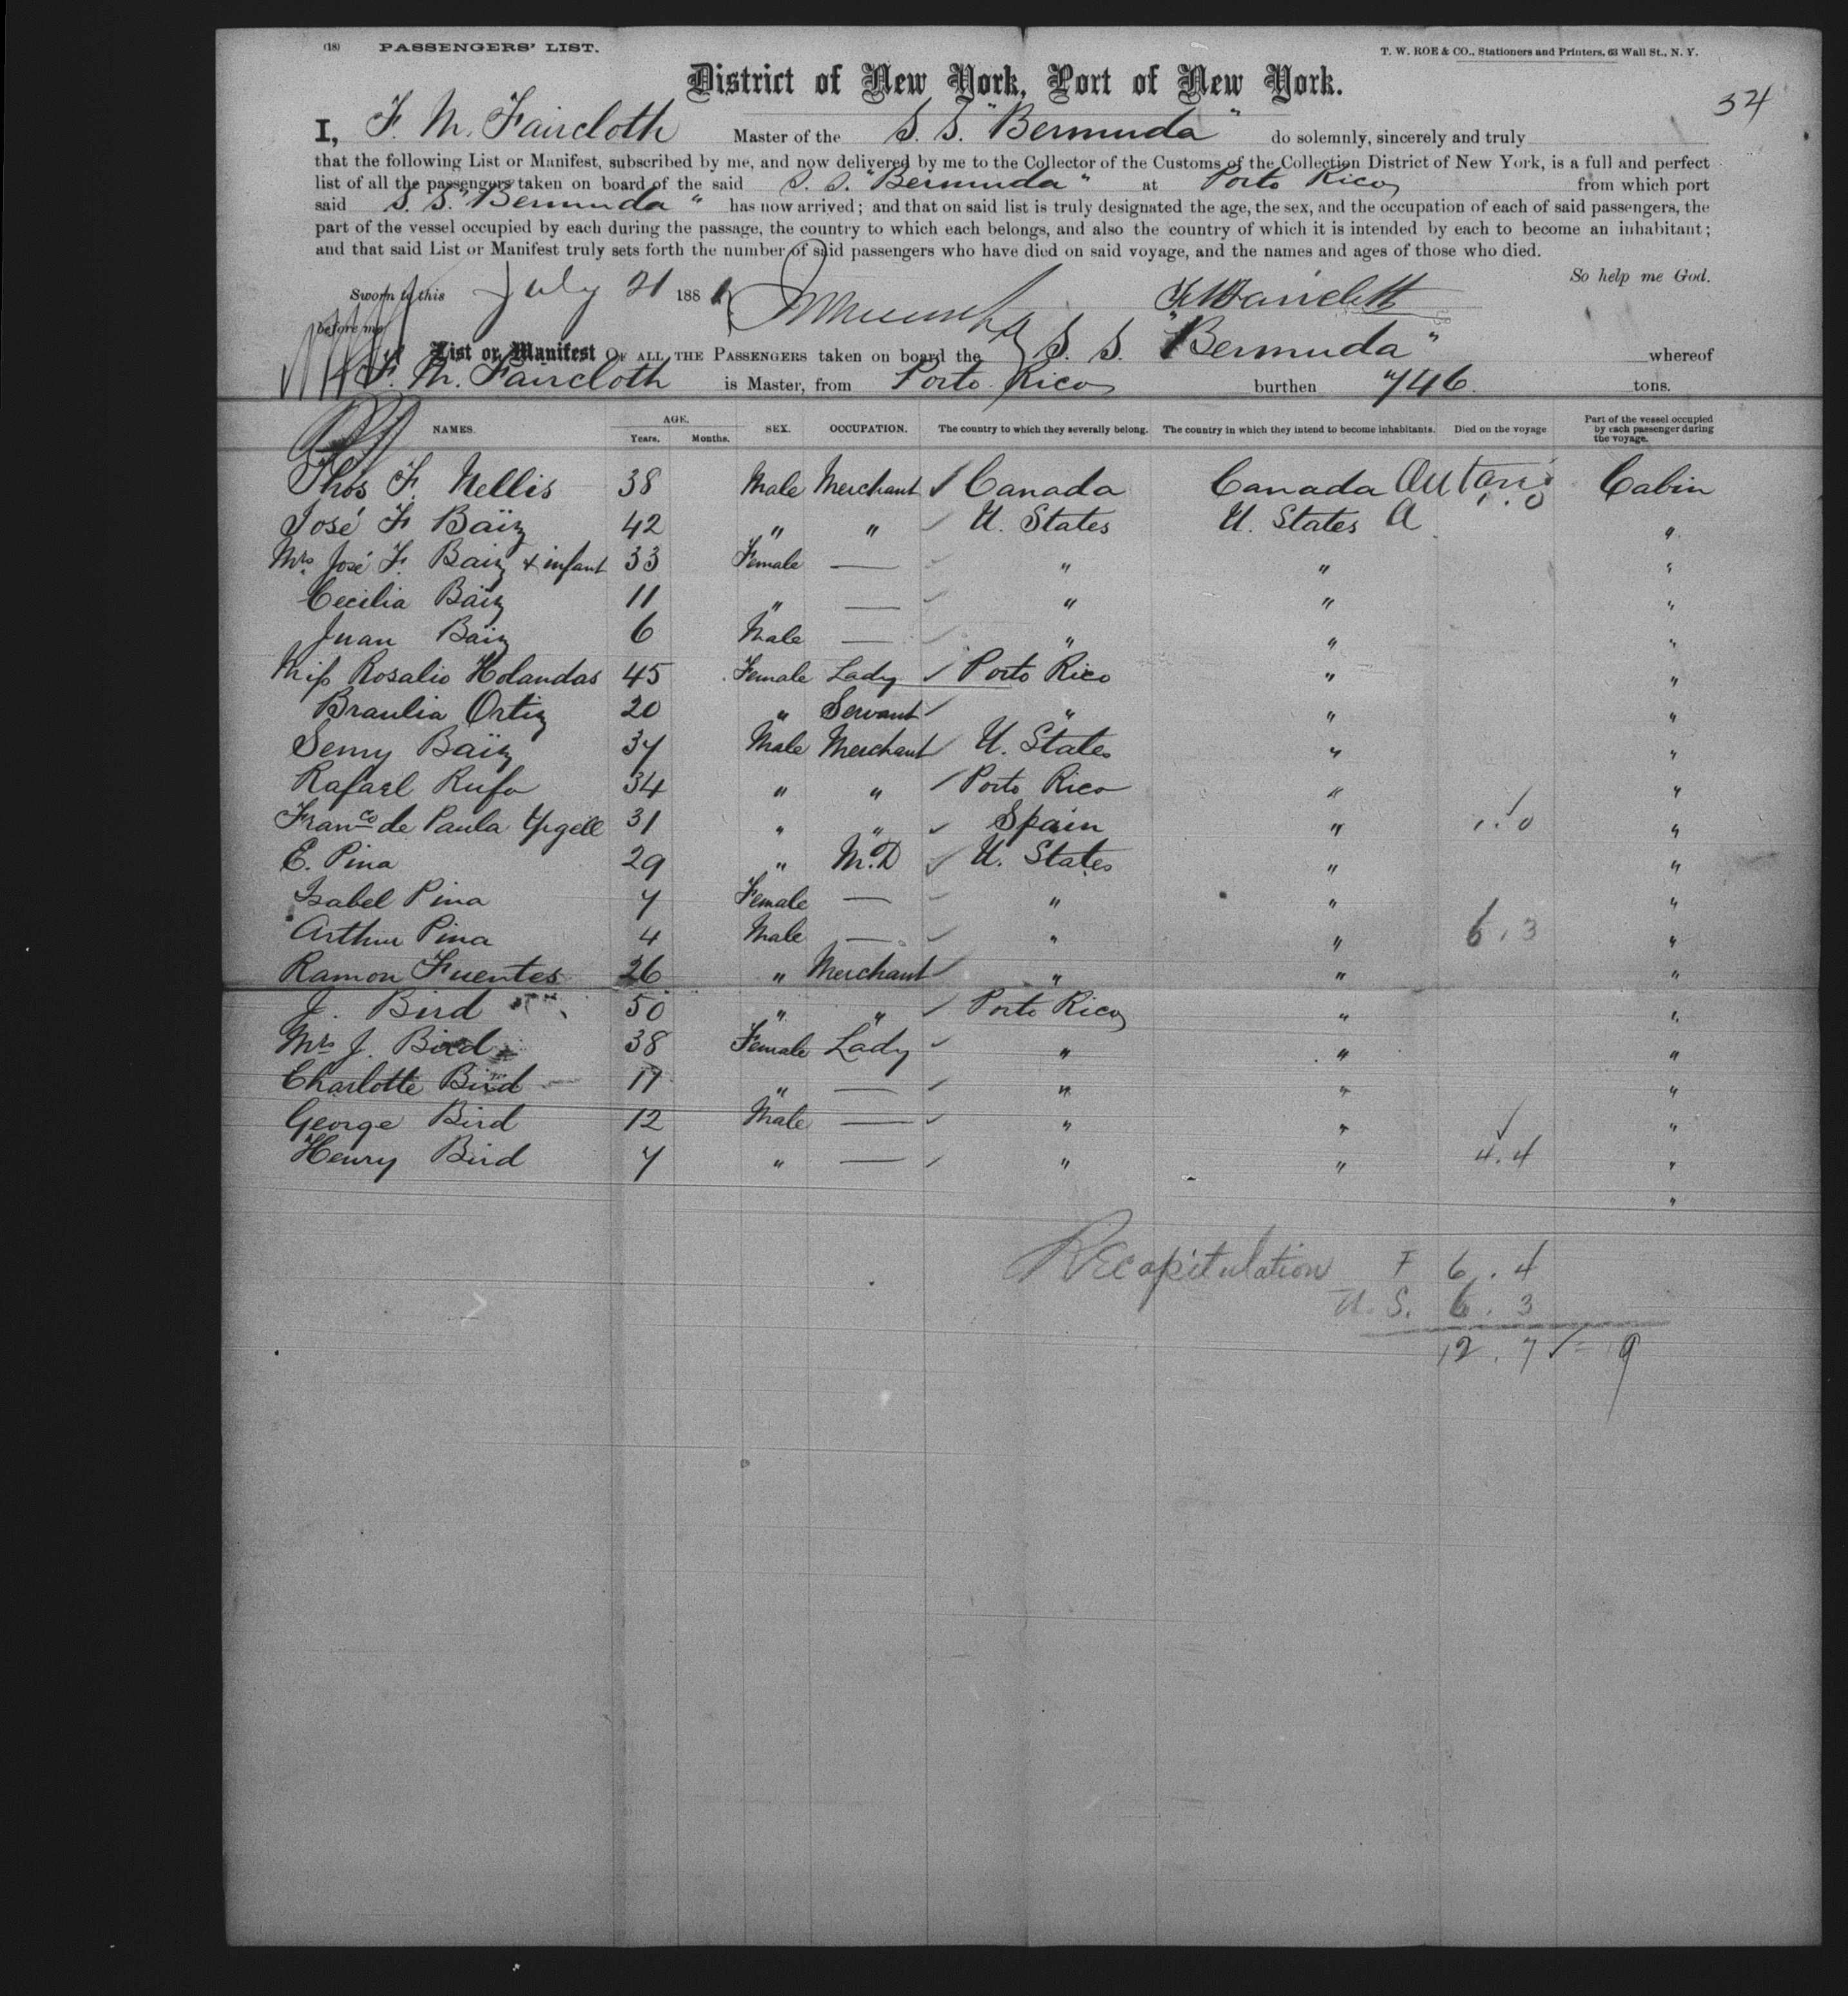 (18) PASSENGERS' LIST. T. W. ROE & CO., Stationers and Printers, 63 Wall St., N. Y.
District of New York, Port of New York.
34
I, F. M. Faircloth Master of the S. S. "Bermuda" do solemnly, sincerely and truly
that the following List or Manifest, subscribed by me, and now delivered by me to the Collector of the Customs of the Collection District of New York, is a full and perfect
list of all the passengers taken on board of the said S. S. "Bermuda" at Porto Rico from which port
said S. S. "Bermuda" has now arrived; and that on said list is truly designated the age, the sex, and the occupation of each of said passengers, the
part of the vessel occupied by each during the passage, the country to which each belongs, and also the country of which it is intended by each to become an inhabitant;
and that said List or Manifest truly sets forth the number of said passengers who have died on said voyage, and the names and ages of those who died.
So help me God.
Sworn to this July 21 188 F M Faircloth
before me
List or Manifest OF ALL THE PASSENGERS taken on board the S. S. "Bermuda" whereof
F. M. Faircloth is Master, from Porto Rico burthen 746 tons.
NAMES. AGE. Years. Months. SEX. OCCUPATION. The country to which they severally belong. The country in which they intend to become inhabitants. Died on the voyage Part of the vessel occupied by each passenger during the voyage.
Thos F. Nellis 38 Male Merchant ✓ Canada Canada Ontario 1.0 Cabin
José F. Baïz 42 " " ✓ U. States U. States A "
Mrs José F. Baiz & infant 33 Female — ✓ " " "
Cecilia Baiz 11 " — ✓ " " "
Juan Baiz 6 Male — ✓ " " "
Miss Rosalio Holandas 45 Female Lady ✓ Porto Rico " "
Braulia Ortiz 20 " Servant ✓ " " "
Semy Baïz 37 Male Merchant ✓ U. States " "
Rafael Rufo 34 " " ✓ Porto Rico " "
Franco de Paula 31 " " ✓ Spain " 1.0 "
E. Pina 29 " M.D ✓ U. States " "
Isabel Pina 7 Female — ✓ " " "
Arthur Pina 4 Male — ✓ " " 6.3 "
Ramon Fuentes 26 " Merchant ✓ " " "
J. Bird 50 " " ✓ Porto Rico " "
Mrs J. Bird 38 Female Lady ✓ " " "
Charlotte Bird 17 " — ✓ " " "
George Bird 12 Male — ✓ " " "
Henry Bird 7 " — ✓ " " 4.4 "
"
Recapitulation F 6.4
U.S. 6.3
12.7 ✓ = 19